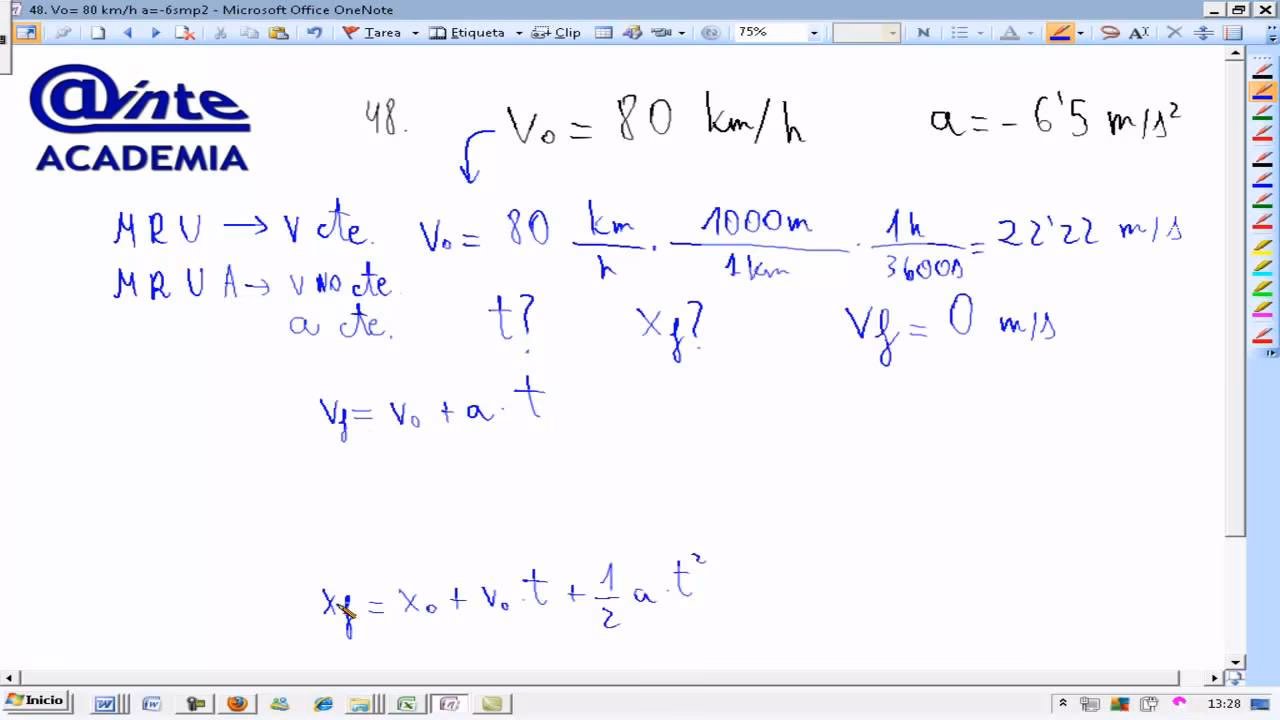 48. Vo= 80 km/h a=-6smp2 - Microsoft Office OneNote
Tarea Etiqueta Clip 75% N A
@inte
ACADEMIA
48. V₀ = 80 km/h a = - 6'5 m/s²
MRU → V cte. V₀ = 80 km/h · 1000m/1km · 1h/3600s = 22'22 m/s
MRUA → V NO cte
a cte. t? xf? Vf = 0 m/s
Vf = V₀ + a · t
xf = x₀ + V₀ · t + 1/2 a · t²
Inicio 13:28